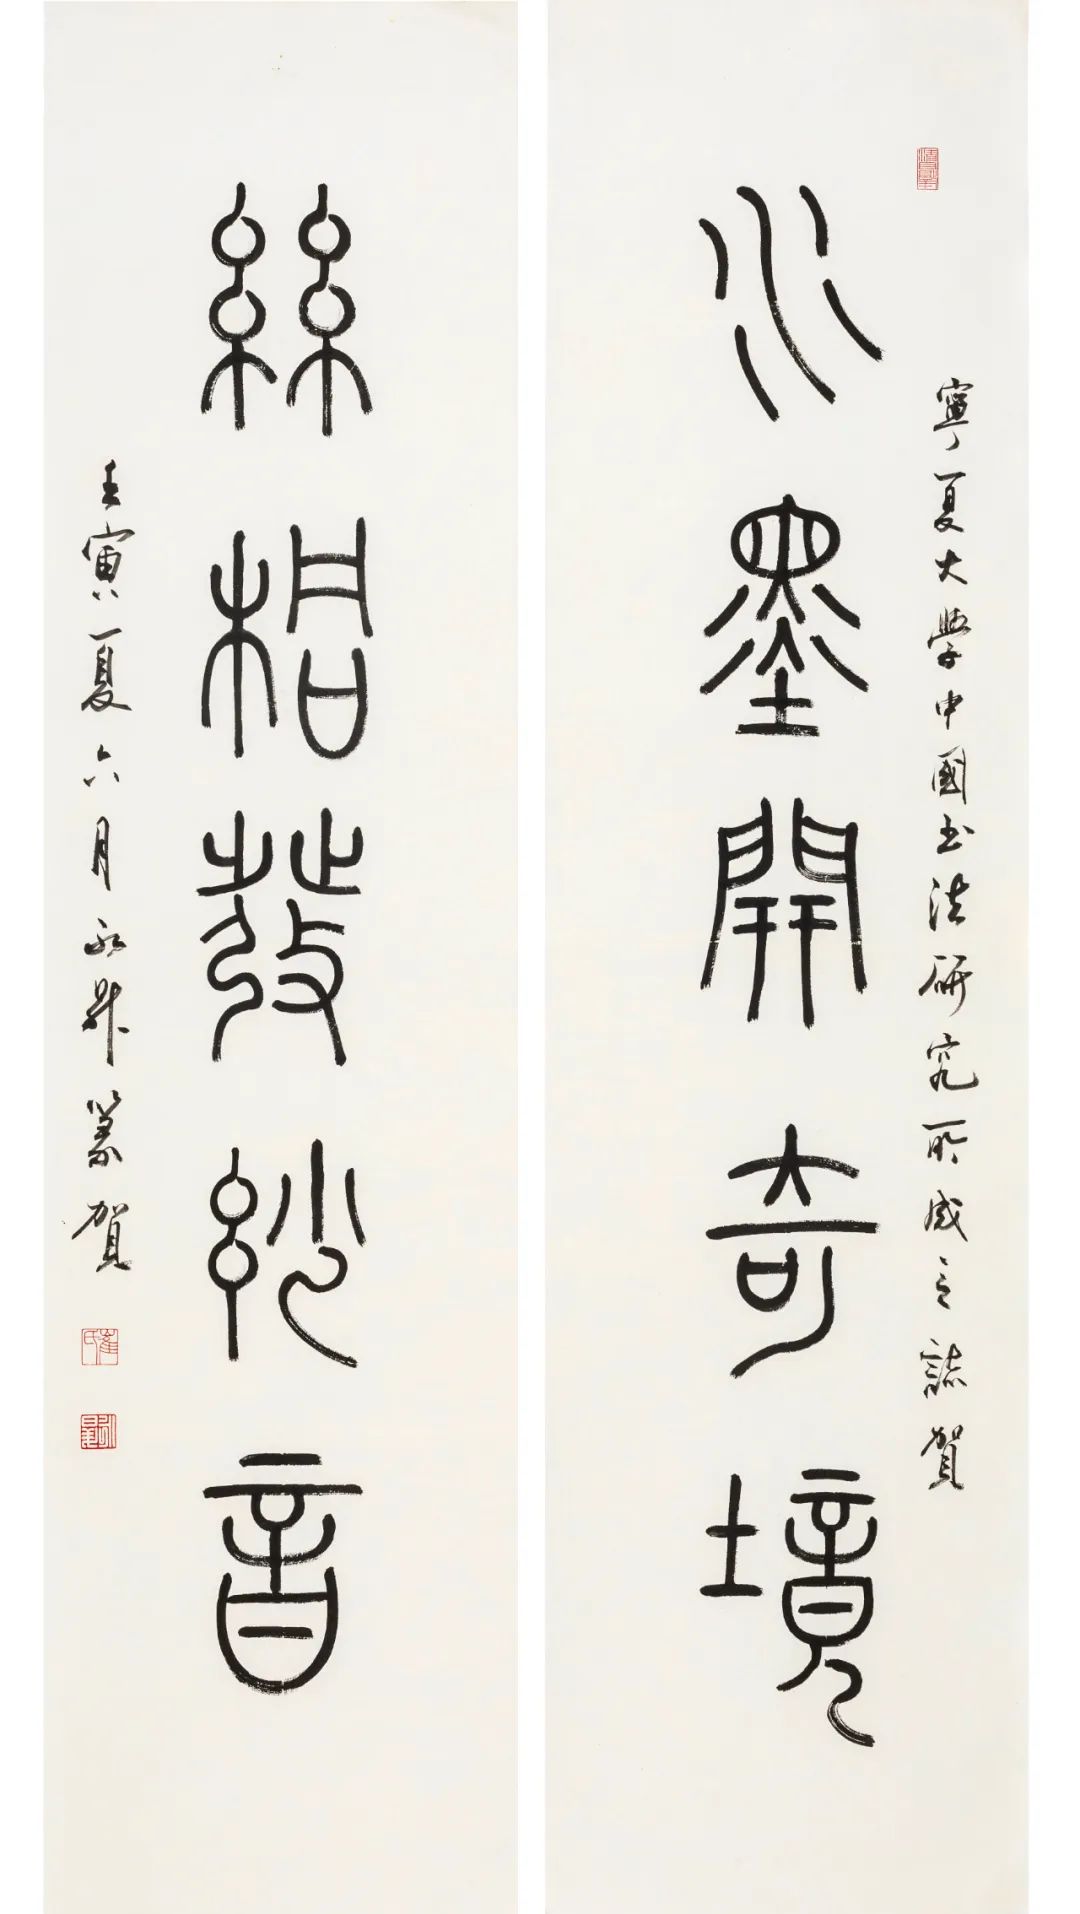 寧夏大學中國书法研究所成立誌賀
水墨開奇境
絲桐發玅音
壬寅夏六月永昇篆賀
崔氏